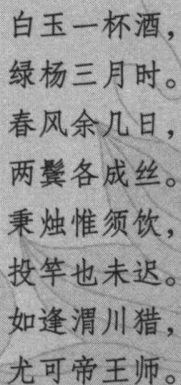 白玉一杯酒，
绿杨三月时。
春风余几日，
两鬓各成丝。
秉烛惟须饮，
投竿也未迟。
如逢渭川猎，
尤可帝王师。